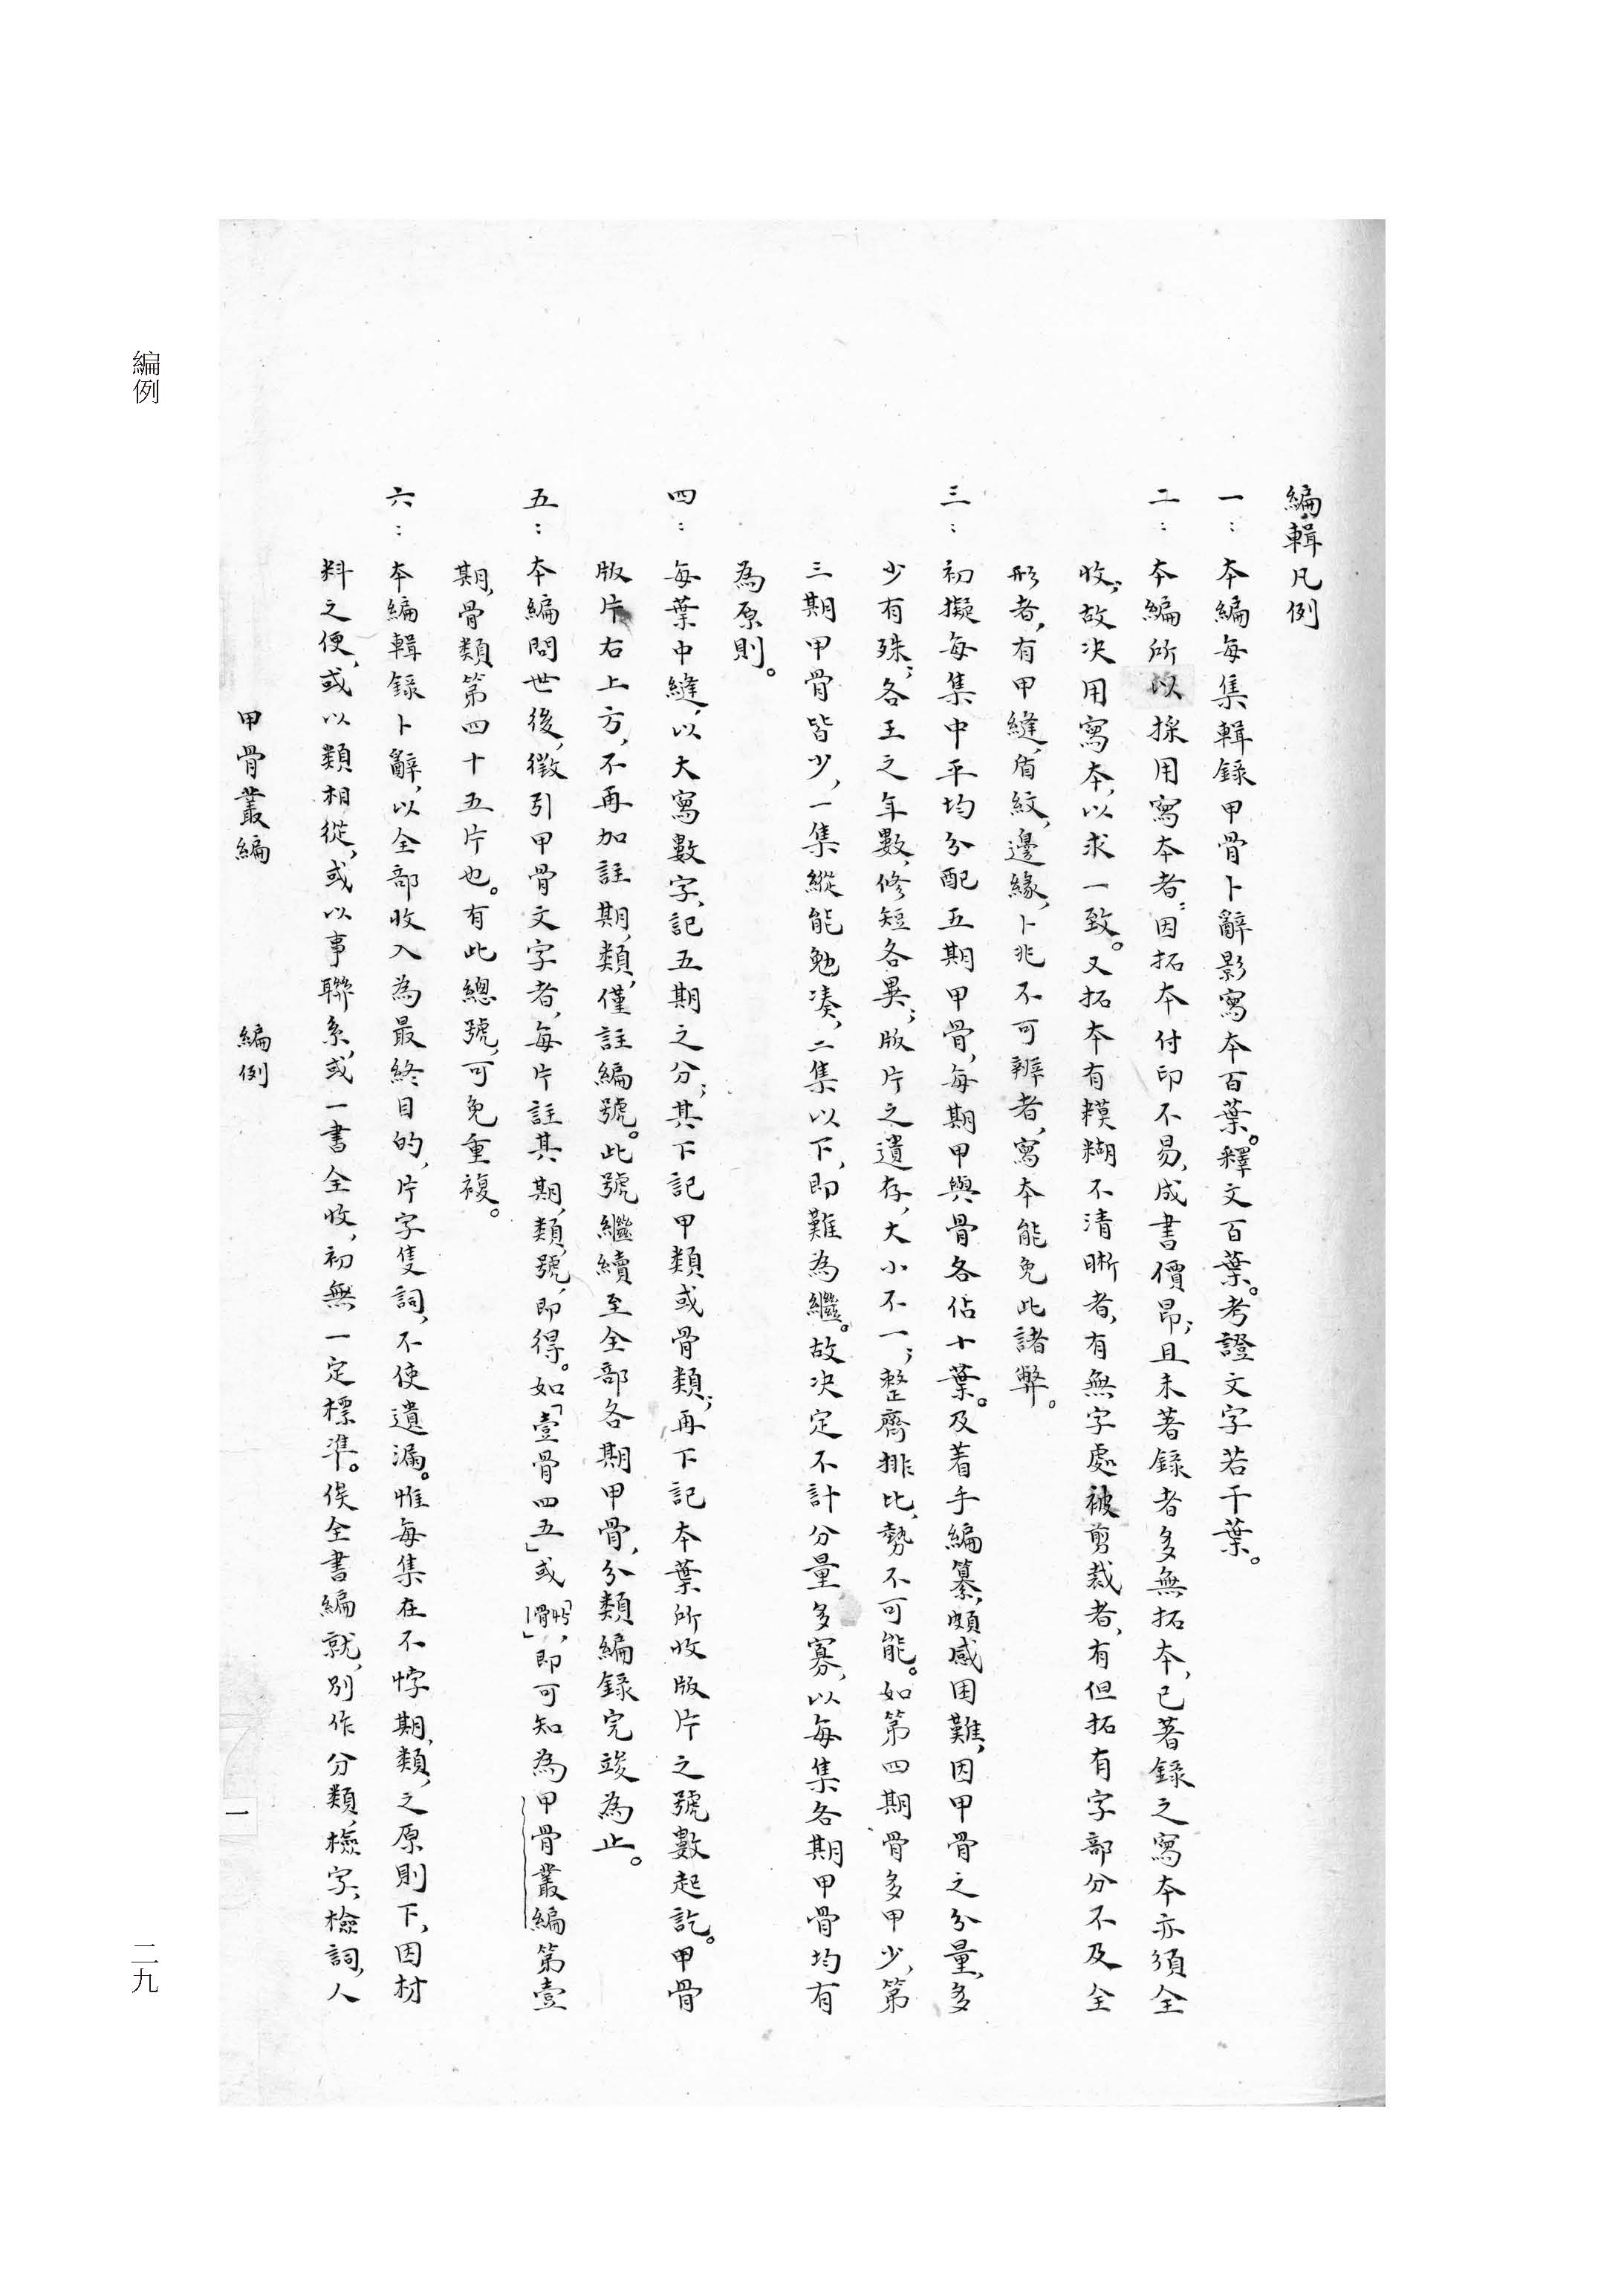 編輯凡例
一：本編每集輯錄甲骨卜辭影寫本百葉。釋文百葉。考證文字若干葉。
二：本編所以採用寫本者：因拓本付印不易，成書價昂；且未著錄者多無拓本，已著錄之寫本亦須全
收，故決用寫本，以求一致。又拓本有糢糊不清晰者，有無字處被剪裁者，有但拓有字部分不及全
形者，有甲縫，盾紋，邊緣，卜兆不可辨者，寫本能免此諸弊。
三：初擬每集中平均分配五期甲骨，每期甲與骨各佔十葉。及着手編纂，頗感困難，因甲骨之分量，多
少有殊；各王之年數，修短各異；版片之遺存，大小不一；整齊排比，勢不可能。如第四期骨多甲少，第
三期甲骨皆少，一集縱能勉湊，二集以下，即難為繼。故決定不計分量多寡，以每集各期甲骨均有
為原則。
四：每葉中縫，以大寫數字，記五期之分；其下記甲類或骨類；再下記本葉所收版片之號數起訖。甲骨
版片右上方，不再加註期，類，僅註編號。此號繼續至全部各期甲骨，分類編錄完竣為止。
五：本編問世後，徵引甲骨文字者，每片註其期，類，號，即得。如「壹骨四五」或「1骨45」，即可知為甲骨叢編第壹
期，骨類第四十五片也。有此總號，可免重複。
六：本編輯錄卜辭，以全部收入為最終目的，片字隻詞，不使遺漏。惟每集在不悖期，類，之原則下，因材
料之便，或以類相從，或以事聯系，或一書全收，初無一定標準。俟全書編就，別作分類，檢字，檢詞，人
甲骨叢編 編例 一
編例
二九